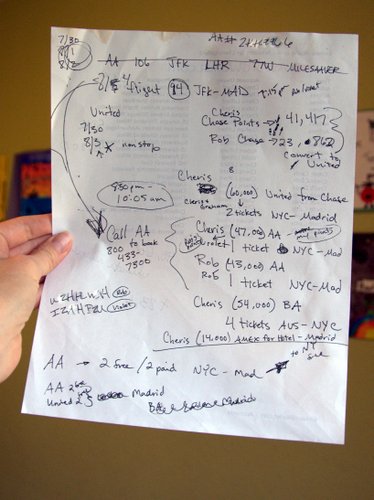 7/30
8/1
8/2
AA#
AA 106 JFK LHR 77W MILESAAVER
8/3 flight 94 JFK-MAD
United
7/30
8/3 nonstop
Cheris
Chase Points → 41,417
Rob Chase → 23,862
convert to
United
Cheris
(60,000) United from Chase
2 tickets NYC-Madrid
830pm -
10:05am
Call AA
800 to book
433-
7300
Cheris (47,000) AA -
1 ticket NYC-Mad
Rob (43,000) AA
Rob 1 ticket NYC-Mad
Cheris (54,000) BA
4 tickets AUS-NYC
Cheris (14,000) AMEX for Hotel-Madrid
Rob
Violet
AA → 2 free/2 paid NYC-Mad
AA 26k Madrid
United 25 Madrid